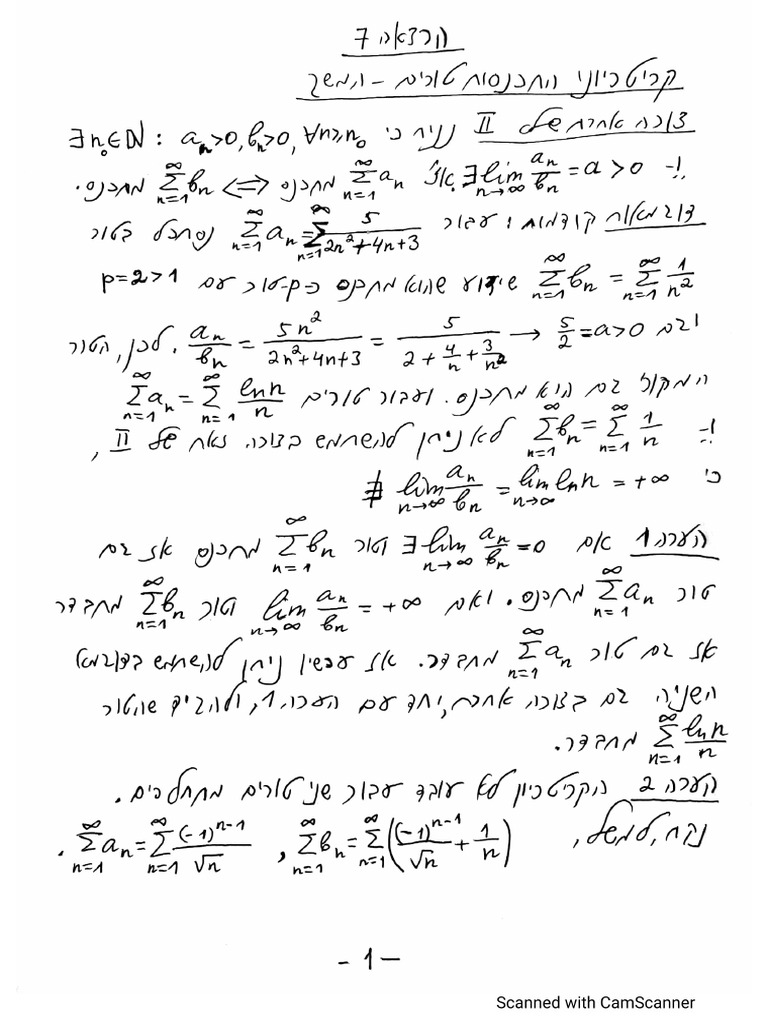 הרצאה 7
קריטריוני התכנסות טורים – המשך
צורה אחרת של II נניח כי ∃n₀∈ℕ: aₙ>0, bₙ>0, ∀n≥n₀
ו- ∃lim_{n→∞} aₙ/bₙ = a > 0. אז Σ_{n=1}^{∞} aₙ מתכנס ⟺ Σ_{n=1}^{∞} bₙ מתכנס.
דוגמאות קודמות: עבור Σ_{n=1}^{∞} aₙ = Σ_{n=1}^{∞} 5/(2n²+4n+3) נסתכל בטור
Σ_{n=1}^{∞} bₙ = Σ_{n=1}^{∞} 1/n² שידוע שהוא מתכנס כ-p-טור עם p=2>1
וגם aₙ/bₙ = 5n²/(2n²+4n+3) = 5/(2+4/n+3/n²) → 5/2 = a>0. לכן, הטור
המקורי גם הוא מתכנס. ועבור טורים Σ_{n=1}^{∞} aₙ = Σ_{n=1}^{∞} ln n/n
ו- Σ_{n=1}^{∞} bₙ = Σ_{n=1}^{∞} 1/n לא ניתן להשתמש בצורה זאת של II,
כי ∄ lim_{n→∞} aₙ/bₙ = lim_{n→∞} ln n = +∞
הערה 1 אם ∃lim_{n→∞} aₙ/bₙ = 0 וטור Σ_{n=1}^{∞} bₙ מתכנס אז גם
טור Σ_{n=1}^{∞} aₙ מתכנס. ואם lim_{n→∞} aₙ/bₙ = +∞ וטור Σ_{n=1}^{∞} bₙ מתבדר
אז גם טור Σ_{n=1}^{∞} aₙ מתבדר. אז עכשיו ניתן להשתמש בדוגמא
השניה גם בצורה אחרת, יחד עם הערה 1, ולהגיד שהטור
Σ_{n=1}^{∞} ln n/n מתבדר.
הערה 2 הקריטריון לא עובד עבור שני טורים מתחלפים.
נקח, למשל, Σ_{n=1}^{∞} aₙ = Σ_{n=1}^{∞} (-1)^{n-1}/√n, Σ_{n=1}^{∞} bₙ = Σ_{n=1}^{∞} ((-1)^{n-1}/√n + 1/n).
-1-
Scanned with CamScanner